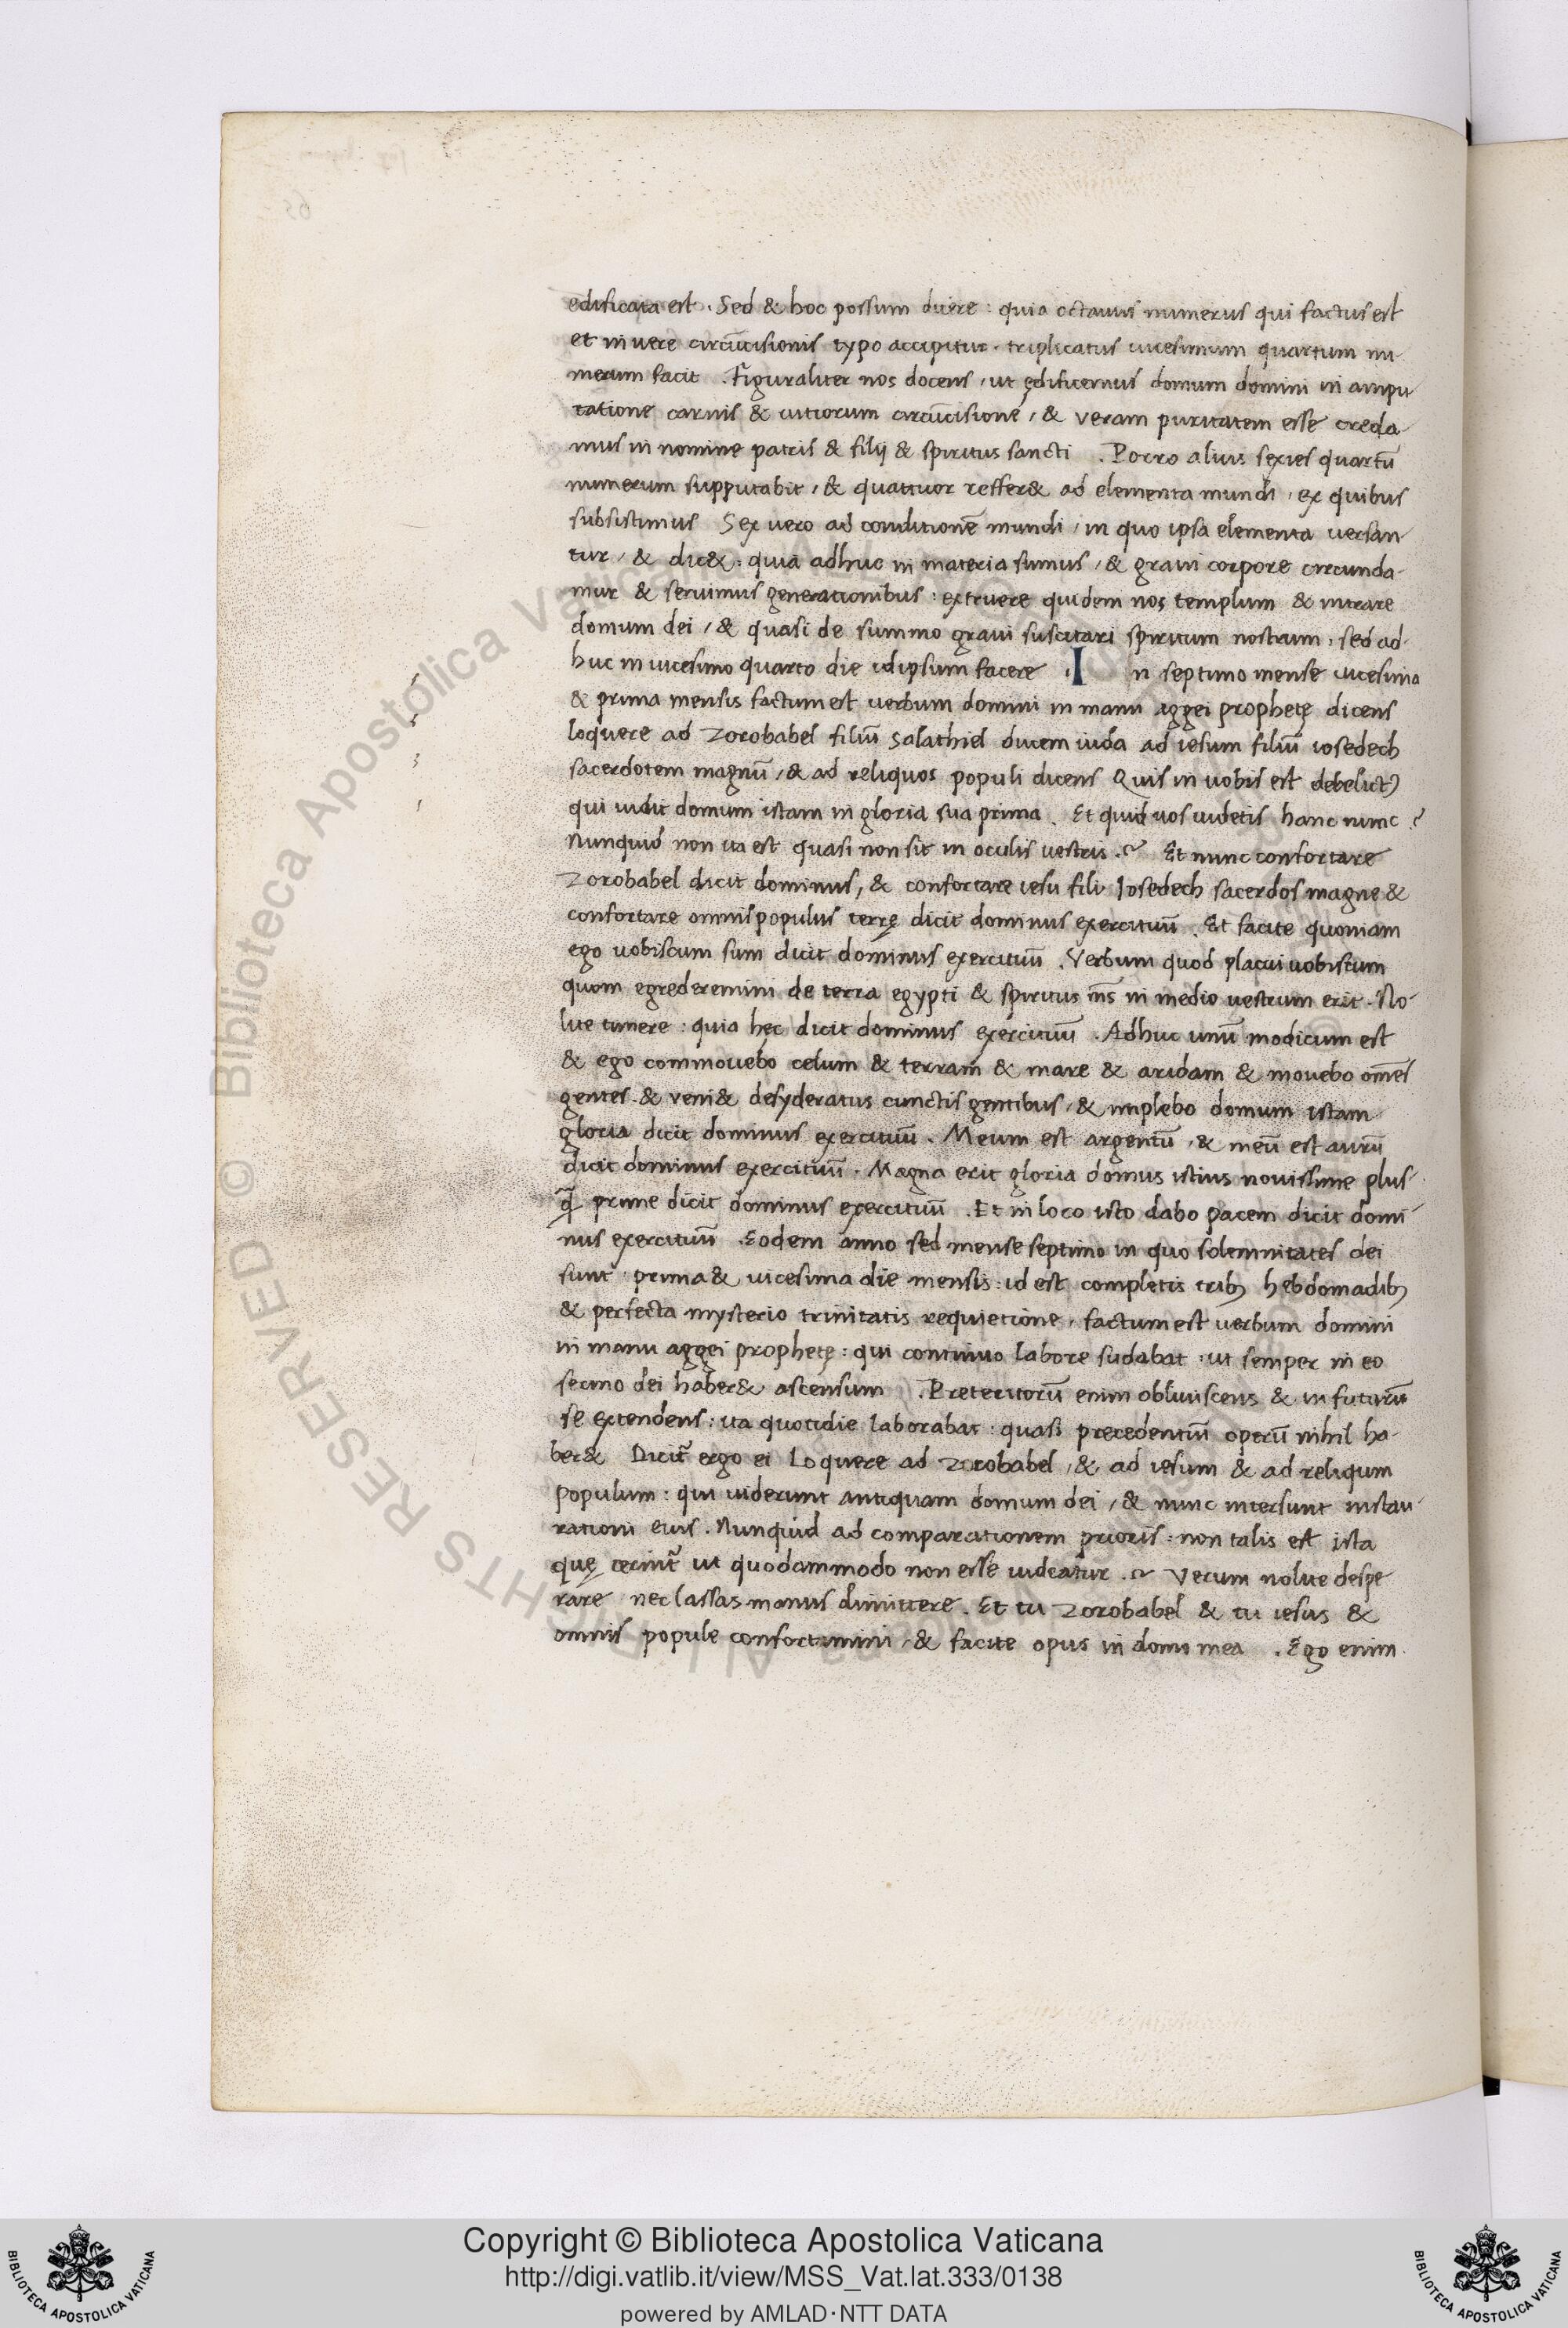 edificata est. Sed & hoc possum dicere: quia octauus numerus qui factus est
et in uere circūcisionis typo accipitur. triplicatus uicesimum quartum nu
merum facit. Figuraliter nos docens, ut ędificemus domum domini in ampu
tatione carnis & uitiorum circūcisione, & veram puritatem esse creda
mus in nomine patris & filij & spiritus sancti. Porro alius sexies quartū
numerum supputabit, & quattuor reffer& ad elementa mundi, ex quibus
subsistimus Sex uero ad conditionē mundi, in quo ipsa elementa versan
tur, & dic&: quia adhuc in materia sumus, & graui corpore circunda-
mur & seruimus generationibus: extruere quidem nos templum & intrare
domum dei, & quasi de summo graui suscitari spiritum nostrum, sed ad-
huc in uicesimo quarto die idipsum facere. In septimo mense uicesima
& prima mensis factum est uerbum domini in manu aggei prophetę dicens
loquere ad Zorobabel filiū Salathiel ducem iuda ad iesum filiū iosedech
sacerdotem magnū, & ad reliquos populi dicens Quis in uobis est
qui uidit domum istam in gloria sua prima. Et quid uos uidetis hanc nunc?
Nunquid non ita est quasi non sit in oculis uestris? Et nunc confortare
Zorobabel dicit dominus, & confortare iesu fili Iosedech sacerdos magne &
confortare omnis populus terrę dicit dominus exercituū. Et facite quoniam
ego uobiscum sum dicit dominus exercituū. Verbum quod placui uobiscum
quom egrederemini de terra egypti & spiritus m̄s in medio uestrum erit. No-
lite timere: quia hęc dicit dominus exercituū. Adhuc unū modicum est
& ego commouebo celum & terram & mare & aridam & mouebo om̄es
gentes. & veni& desyderatus cunctis gentibus, & implebo domum istam
gloria dicit dominus exercituū. Meum est argentū, & meū est aurū
dicit dominus exercituū. Magna erit gloria domus istius nouissime plus
q̄ prime dicit dominus exercituū. Et in loco isto dabo pacem dicit domi
nus exercituū. Eodem anno sed mense septimo in quo solemnitates dei
sunt prima & uicesima die mensis: id est completis tribꝫ hebdomadibꝫ
& perfecta mysterio trinitatis requietione, factum est uerbum domini
in manu aggei prophetę: qui continuo labore sudabat, ut semper in eo
sermo dei haber& ascensum. Preteritorū enim obliuiscens & in futurū
se extendens: ita quotidie laborabat: quasi precedentiū operū nihil ha-
ber& Dicit̄ ergo ei Loquere ad Zorobabel, & ad iesum & ad reliqum
populum: qui uiderunt antiquam domum dei, & nunc intersunt instau
rationi eius. Nunquid ad comparationem prioris: non talis est ista
quę cernit̄ ut quodammodo non esse uideatur? Verum nolite despe
rare nec lassas manus dimittere. Et tu Zorobabel & tu iesus &
omnis popule confortamini, & facite opus in domo mea. Ego enim
Copyright © Biblioteca Apostolica Vaticana
http://digi.vatlib.it/view/MSS_Vat.lat.333/0138
powered by AMLAD·NTT DATA
BIBLIOTECA APOSTOLICA VATICANA
BIBLIOTECA APOSTOLICA VATICANA